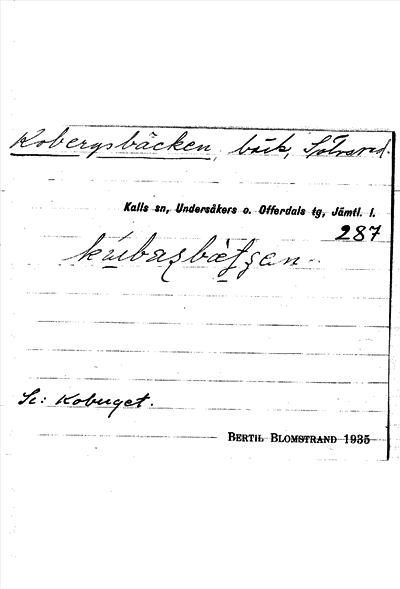 Kobergsbäcken, bäck,
Kalls sn, Undersåkers o. Offerdals tg, Jämtl. l.
287
Se: Koberget.
BERTIL BLOMSTRAND 1935